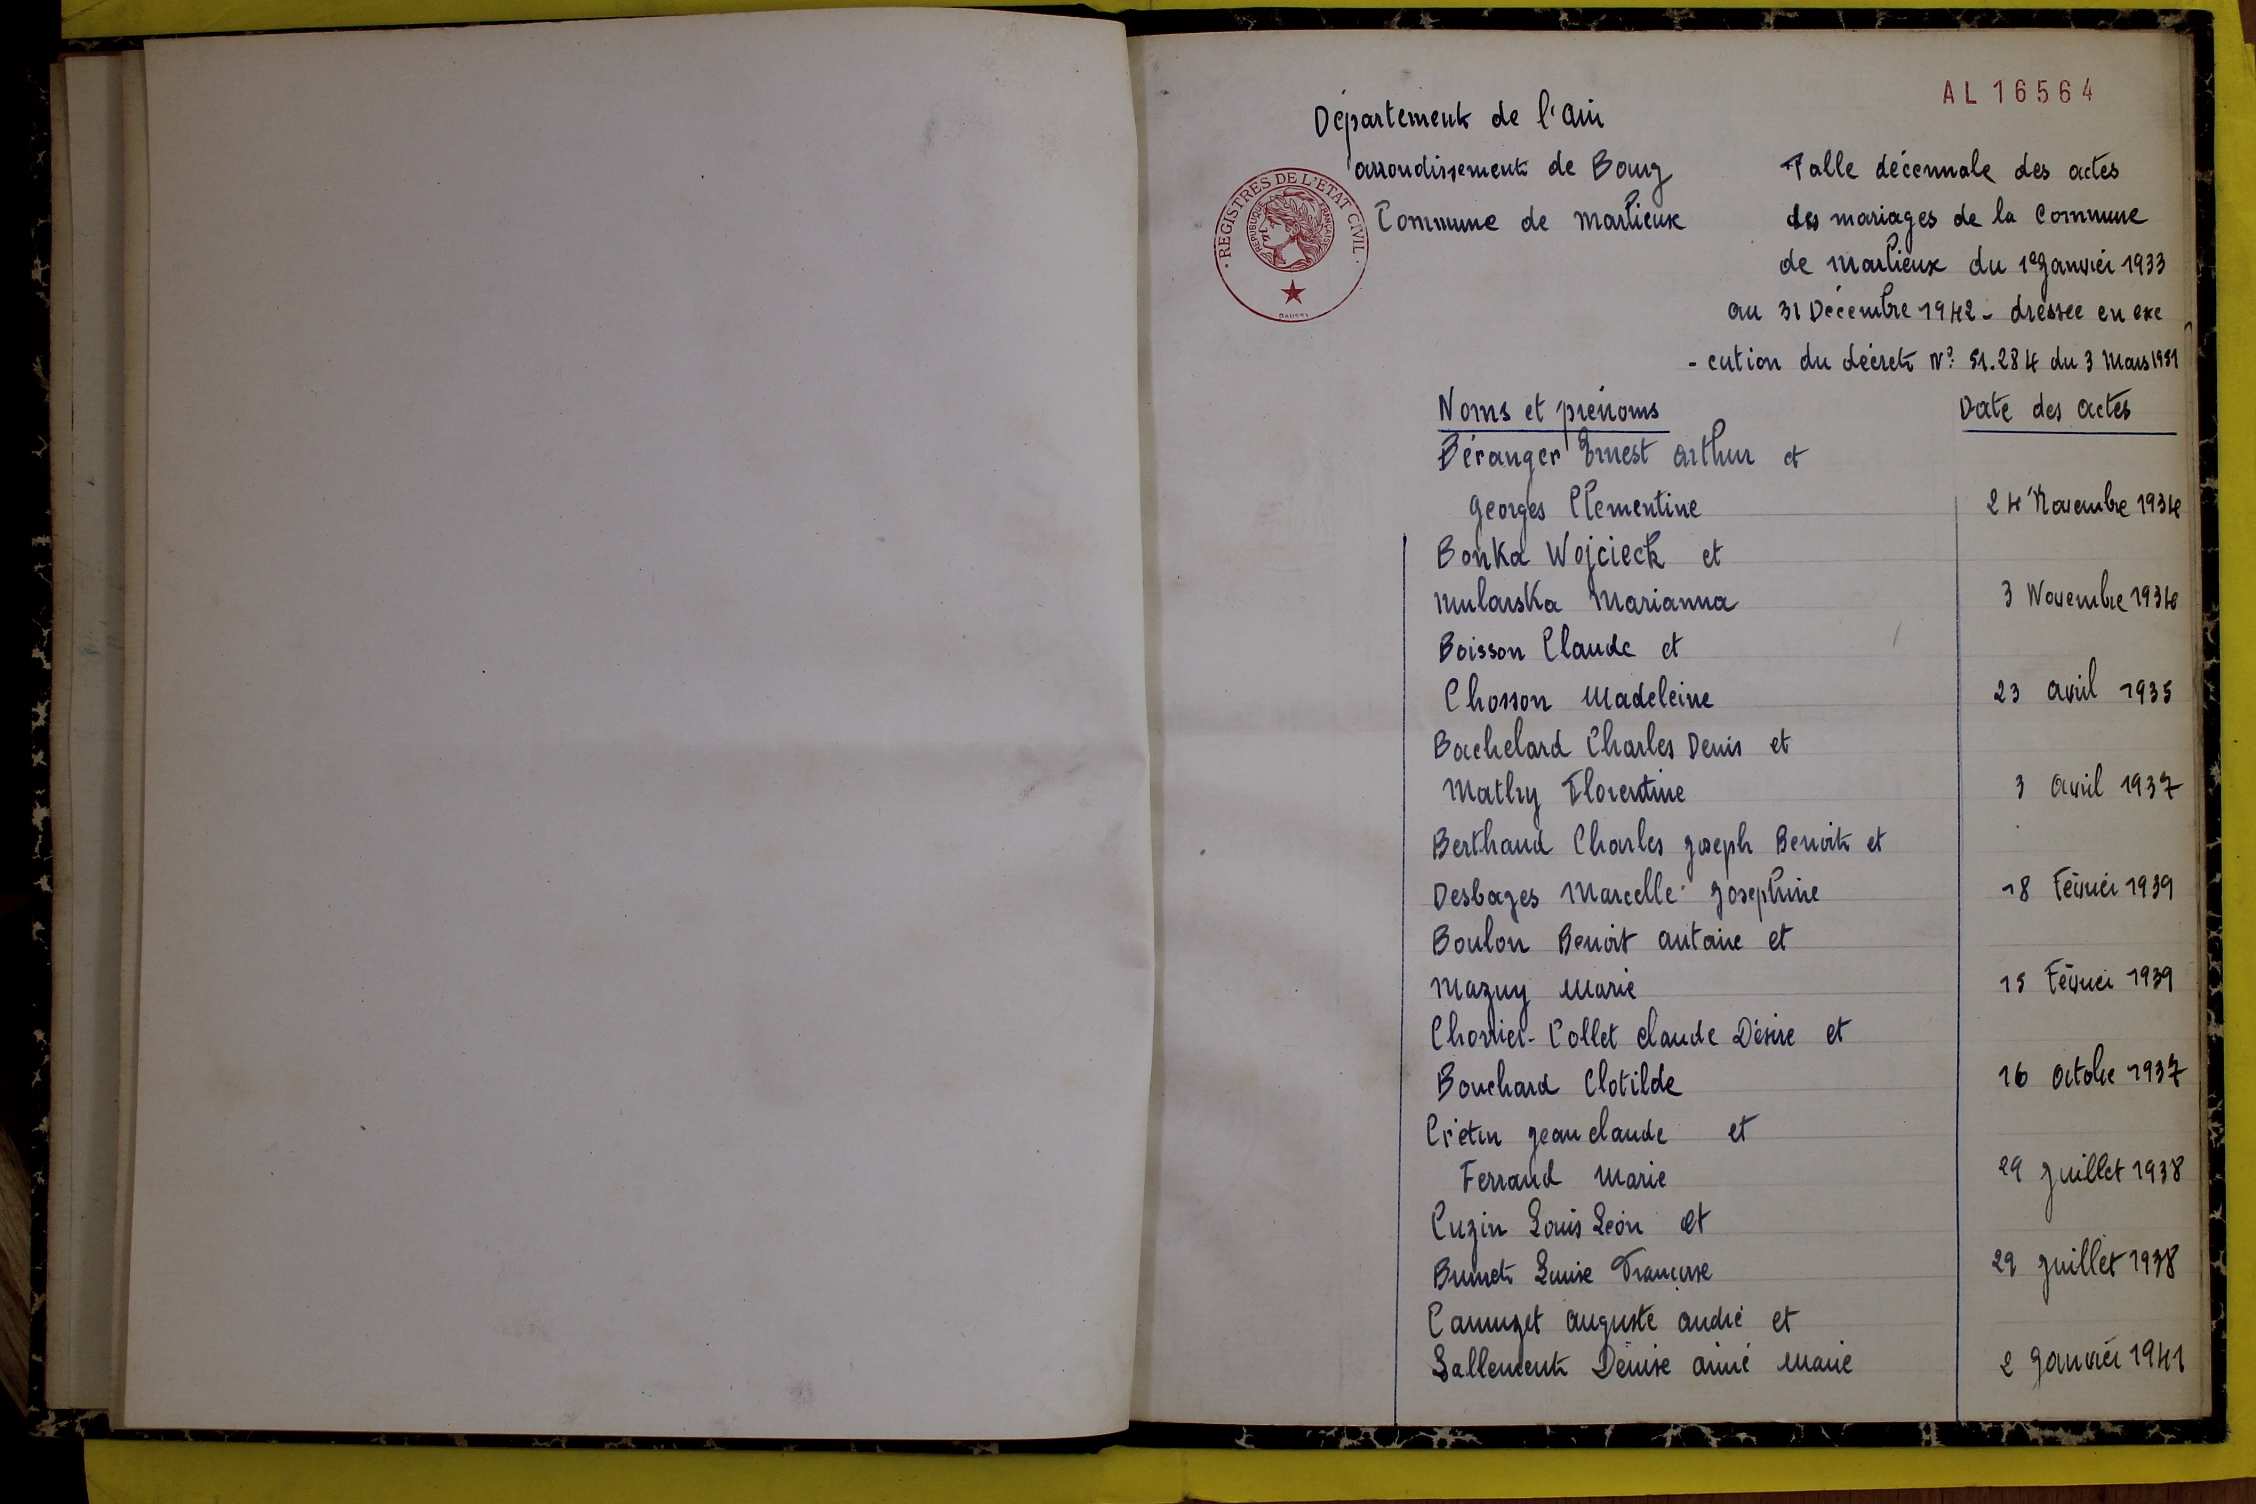 AL 16564
Département de l'Ain
arrondissement de Bourg
Commune de Marlieux
REGISTRES DE L'ETAT CIVIL
REPUBLIQUE FRANÇAISE
Table décennale des actes
des mariages de la Commune
de Marlieux du 1er Janvier 1933
au 31 Décembre 1942 - dressée en exé
- cution du décret N° 51.284 du 3 Mars 1951
Noms et prénoms Date des actes
Béranger Ernest Arthur et
Georges Clémentine 24 Novembre 1934
Bonka Wojcieck et
Mularska Marianna 3 Novembre 1934
Boisson Claude et
Chosson Madeleine 23 avril 1935
Bachelard Charles Denis et
Mathy Florentine 3 avril 1937
Berthaud Charles Joseph Benoit et
Desbages Marcelle Josephine 18 Février 1939
Boulon Benoit antoine et
Mazuy Marie 15 Février 1939
Collet claude Désiré et
Bouchard Clotilde 16 octobre 1937
Crétin Jean claude et
Ferrand Marie 29 Juillet 1938
Cuzin Louis Léon et
Brunet Louise Françoise 29 Juillet 1938
Canuzet auguste andré et
Lallement Denise aimé Marie 2 Janvier 1941